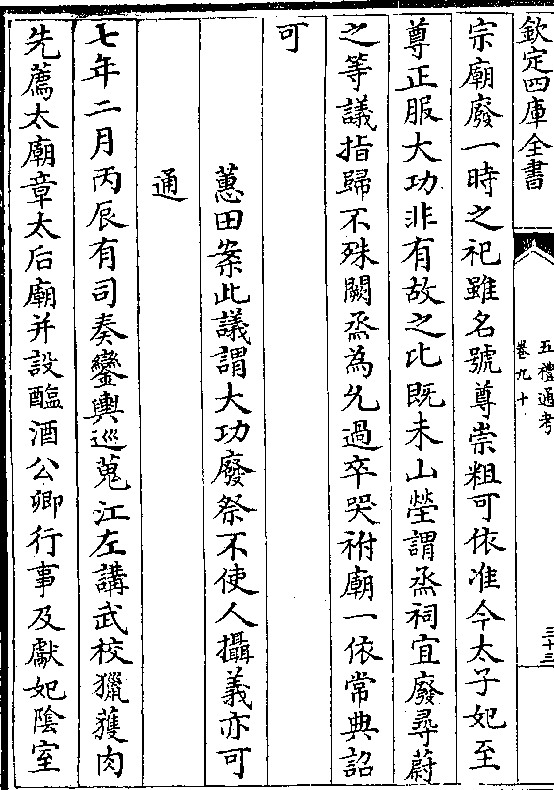 欽定四庫全書
五禮通考
卷九十
三十三
宗廟廢一時之祀雖名號尊崇粗可依准今太子妃至
尊正服大功非有故之比既未山塋謂烝祠宜廢尋蔚
之等議指歸不殊闕烝為允過卒哭祔廟一依常典詔
可
蕙田案此議謂大功廢祭不使人攝義亦可
通
七年二月丙辰有司奏鑾輿巡蒐江左講武校獵獲肉
先薦太廟章太后廟并設醢酒公卿行事及獻妃陰室